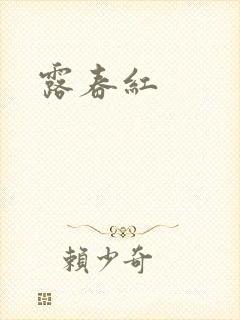 露春紅
賴少奇